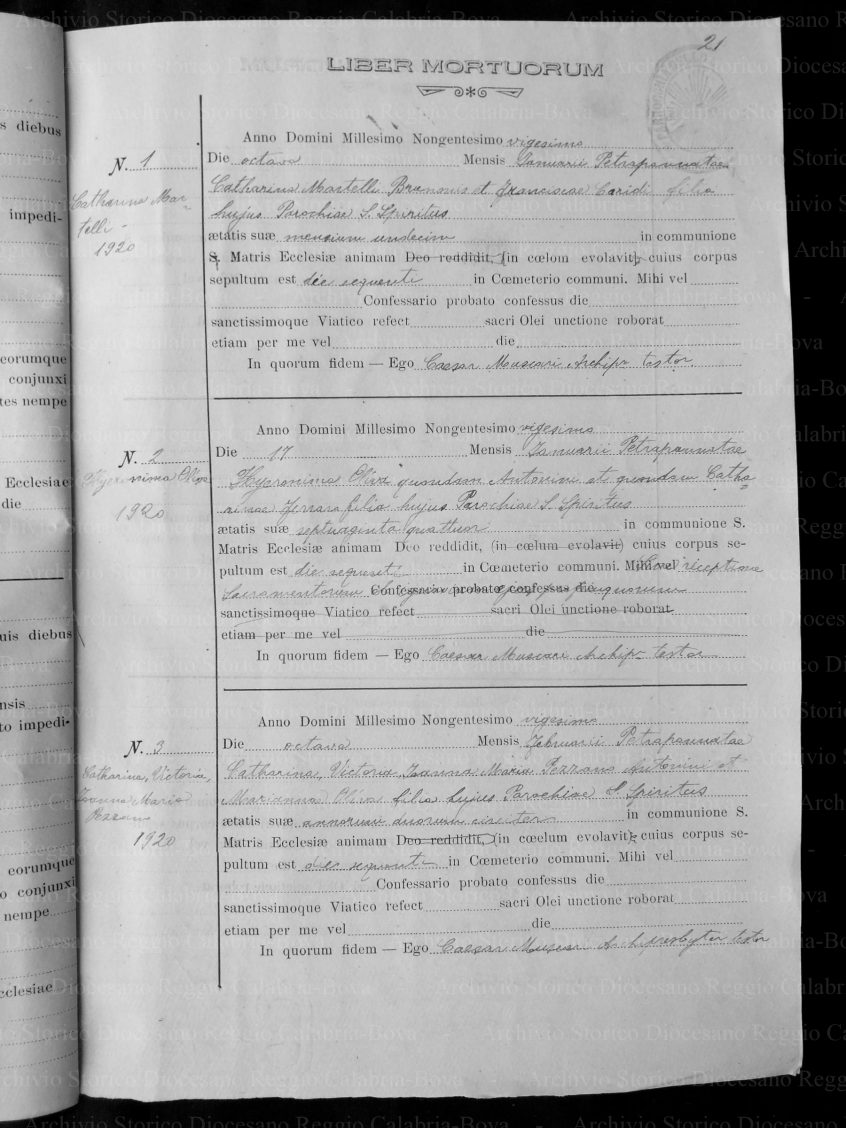 21
LIBER MORTUORUM
N. 1
Catharina Mar-
telli -
1920
Anno Domini Millesimo Nongentesimo vigesimo
Die octava Mensis Januarii Petrapannatae
Catharina Martelli Brunonis et Franciscae Caridi filia
hujus Parochiae S. Spiritus
ætatis suæ mensium undecim in communione
S. Matris Ecclesiæ animam Deo reddidit, (in cœlum evolavit) cuius corpus
sepultum est die sequenti in Cœmeterio communi. Mihi vel
Confessario probato confessus die
sanctissimoque Viatico refect sacri Olei unctione roborat
etiam per me vel die
In quorum fidem — Ego Caesar Muscari Archipr testor
N. 2
Hyeronima Oliva
1920
Anno Domini Millesimo Nongentesimo vigesimo
Die 17 Mensis Januarii Petrapannatae
Hyeronima Oliva quondam Antonini et quondam Catha-
rinae Ferrara filia hujus Parochiae S. Spiritus
ætatis suæ septuaginta quattuor in communione S.
Matris Ecclesiæ animam Deo reddidit, (in cœlum evolavit) cuius corpus se-
pultum est die sequenti in Cœmeterio communi. Mihi vel receptione
Sacramentorum Confessario probato confessus die
sanctissimoque Viatico refect sacri Olei unctione roborat
etiam per me vel die
In quorum fidem — Ego Caesar Muscari Archipr testor
N. 3
Catharina, Victoria,
Joanna Maria
Pezzano
1920
Anno Domini Millesimo Nongentesimo vigesimo
Die octava Mensis Februarii Petrapannatae
Catharina, Victoria Joanna Maria Pezzano Antonini et
Marianna Oliva filia hujus Parochiae S. Spiritus
ætatis suæ annorum duorum circiter in communione S.
Matris Ecclesiæ animam Deo reddidit, (in cœelum evolavit) cuius corpus se-
pultum est die sequenti in Cœmeterio communi. Mihi vel
Confessario probato confessus die
sanctissimoque Viatico refect sacri Olei unctione roborat
etiam per me vel die
In quorum fidem — Ego Caesar Muscari Archipresbyter testor